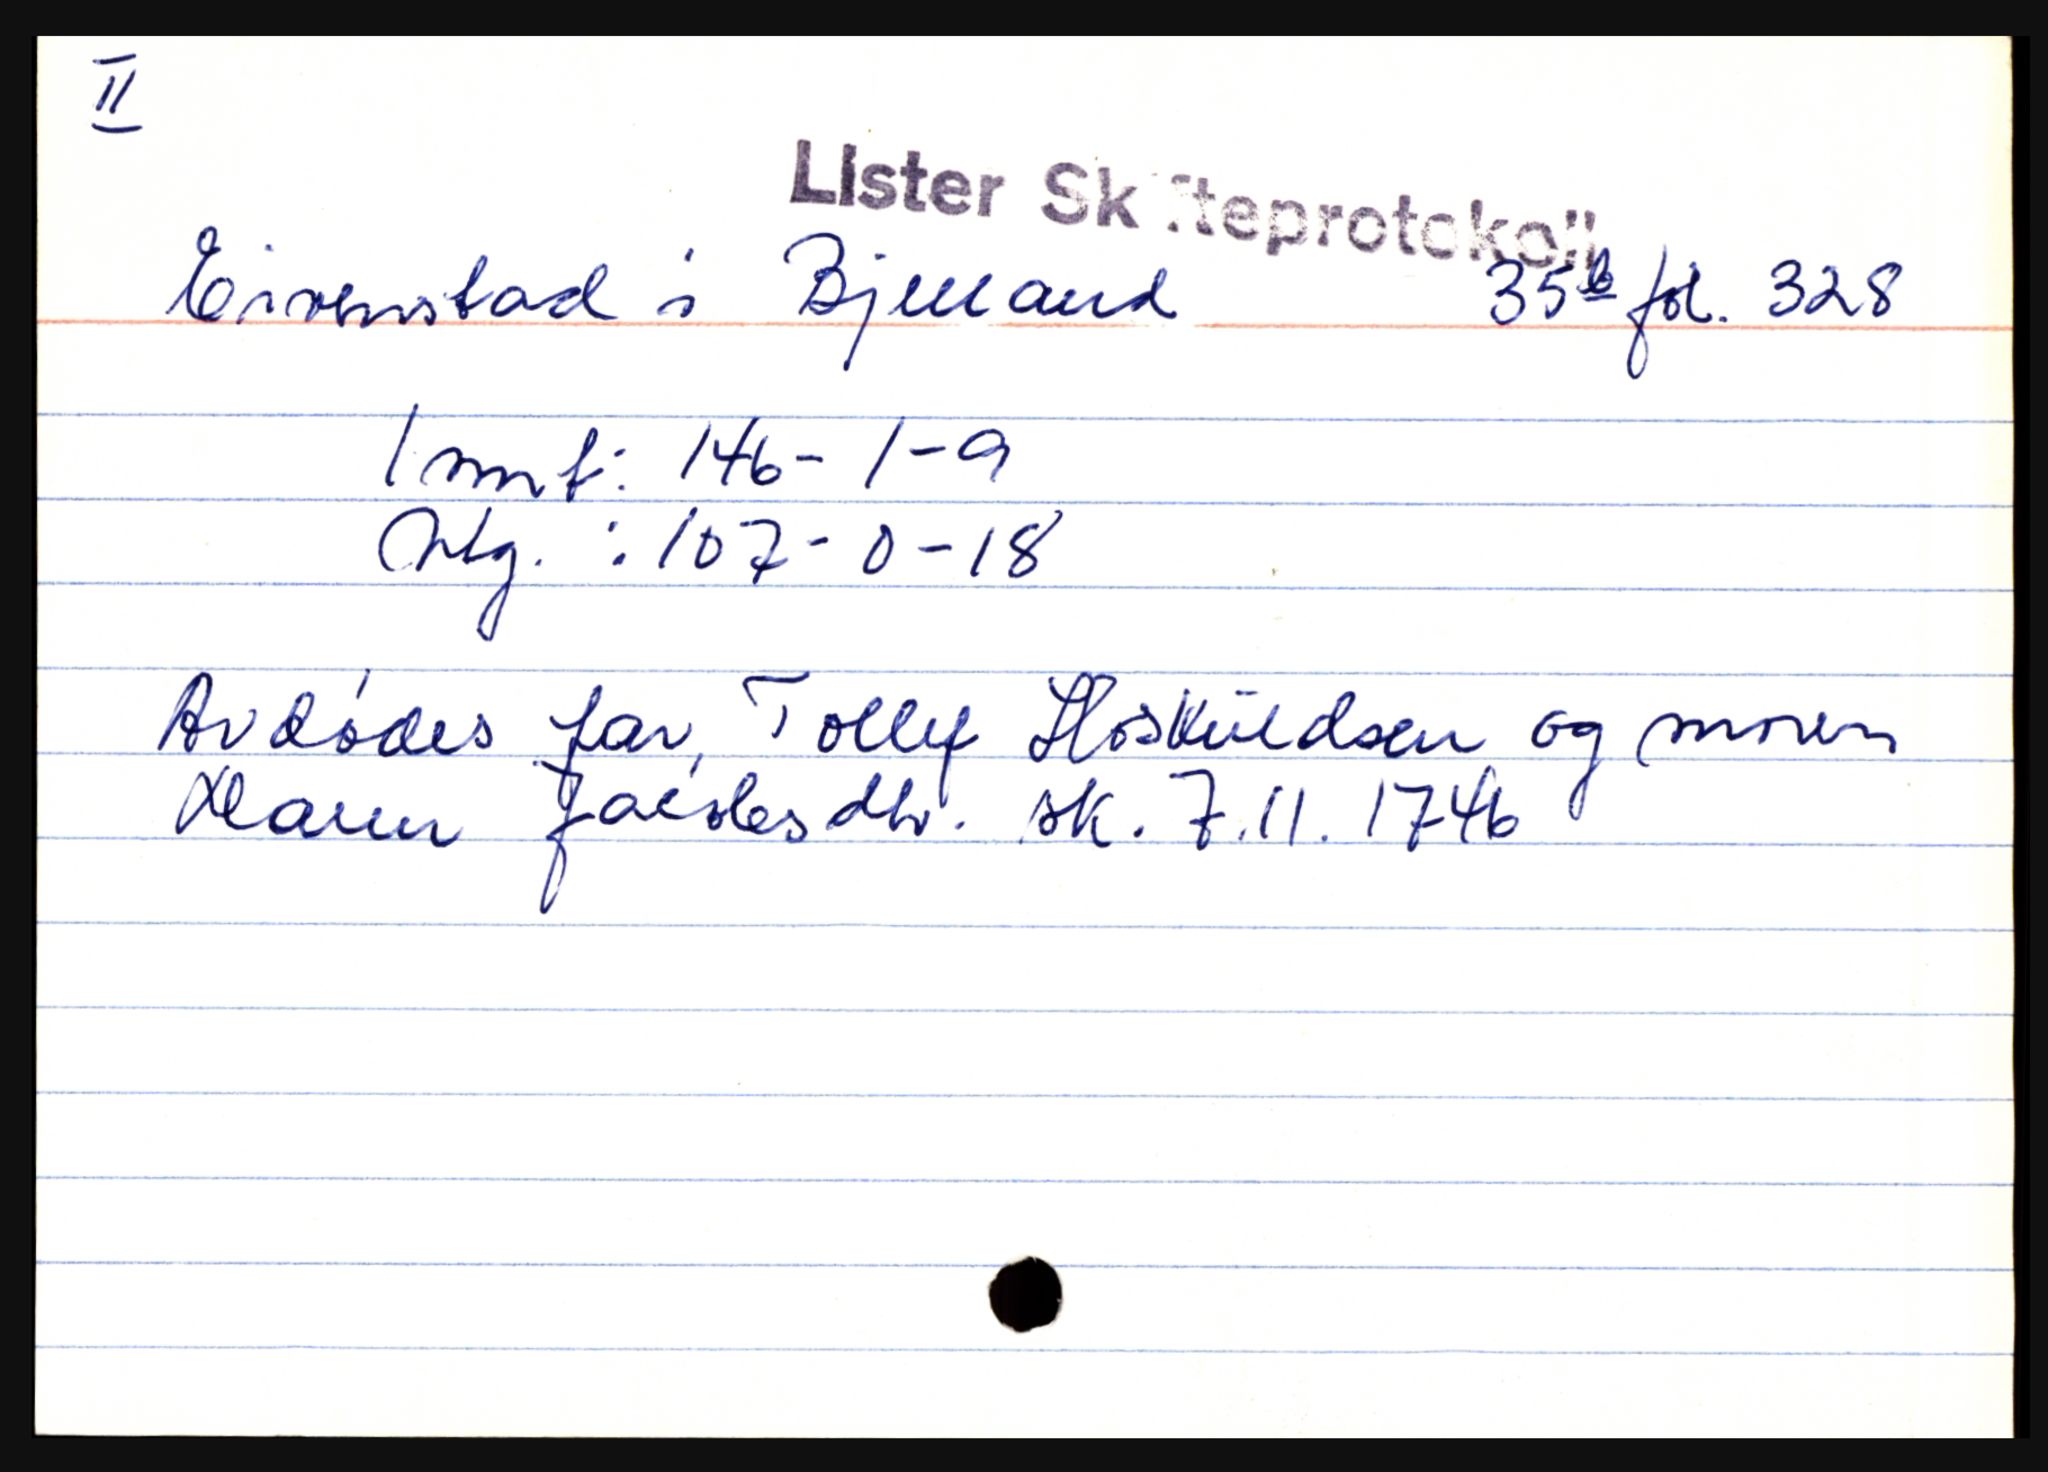 II
Lister Skifteprotokoll
Eivenstad i Bjelland 35b fol. 328
Innt: 146-1-9
Utg. : 107-0-18
Avdødes far, Tollef Høskuldsen og moren
Jacobsdtr. sk. 7.11.1746